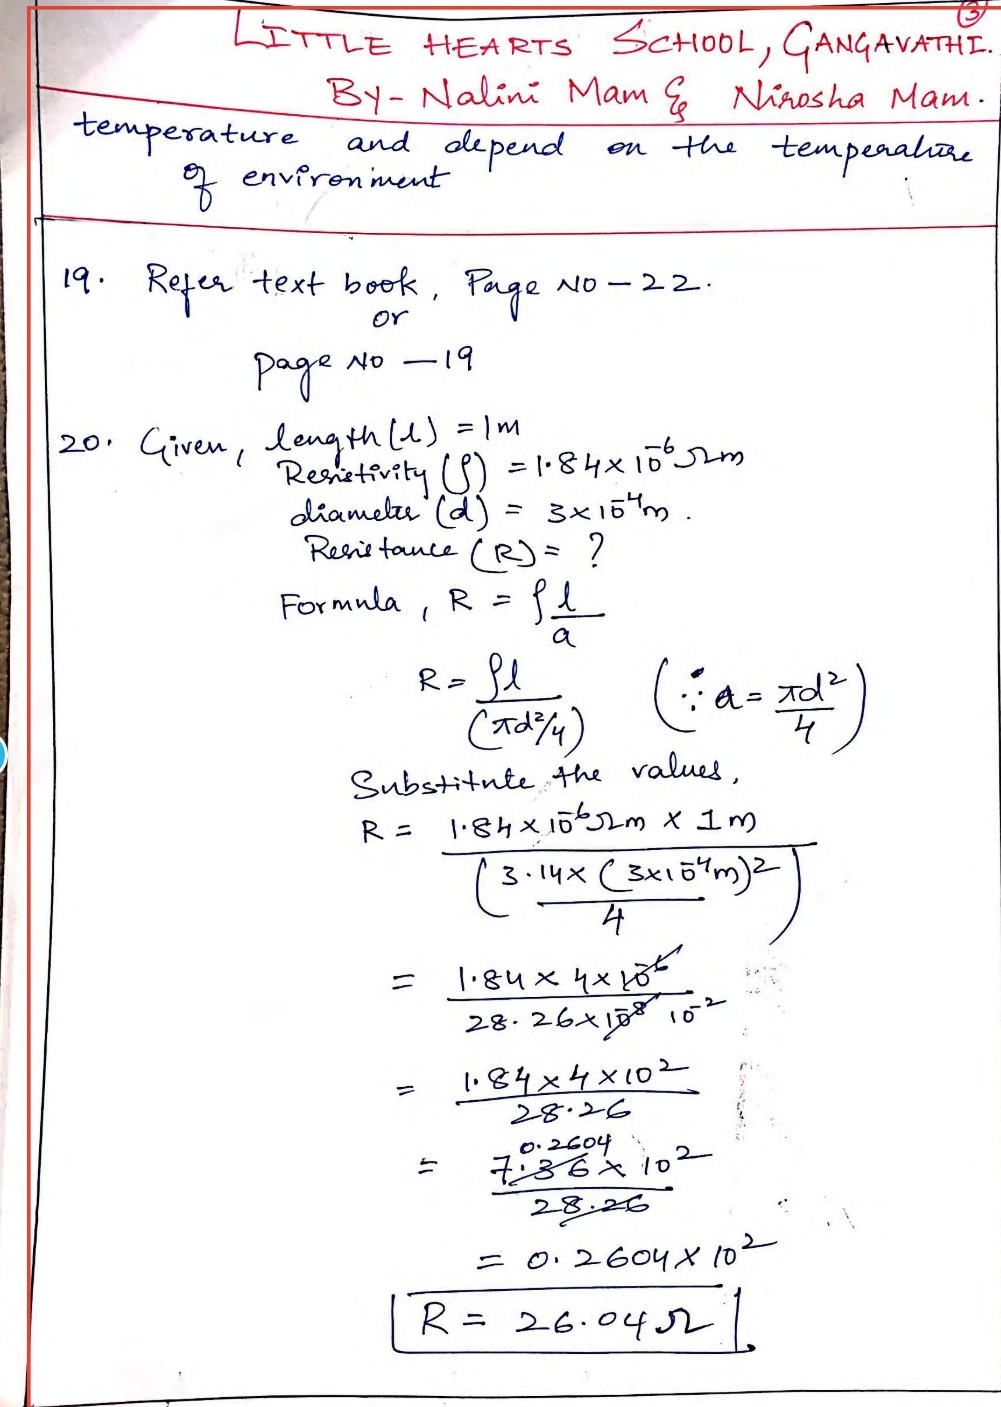 3
LITTLE HEARTS SCHOOL, GANGAVATHI.
By - Nalini Mam & Nirosha Mam.
temperature and depend on the temperature
of environment
19. Refer text book, Page NO - 22.
or
page NO - 19
20. Given, length (l) = 1m
Resistivity (ρ) = 1.84 × 10⁻⁶ Ωm
diameter (d) = 3×10⁻⁴m.
Resistance (R) = ?
Formula, R = ρ l
a
R = ρl (∵ a = πd²/4)
(πd²/4)
Substitute the values,
R = 1.84 × 10⁻⁶Ωm × 1m
(3.14 × (3×10⁻⁴m)²)
4
= 1.84 × 4 × 10⁻⁶
28.26 × 10⁻⁸ 10⁻²
= 1.84 × 4 × 10²
28.26
0.2604
= 7.36 × 10²
28.26
= 0.2604 × 10²
R = 26.04 Ω.